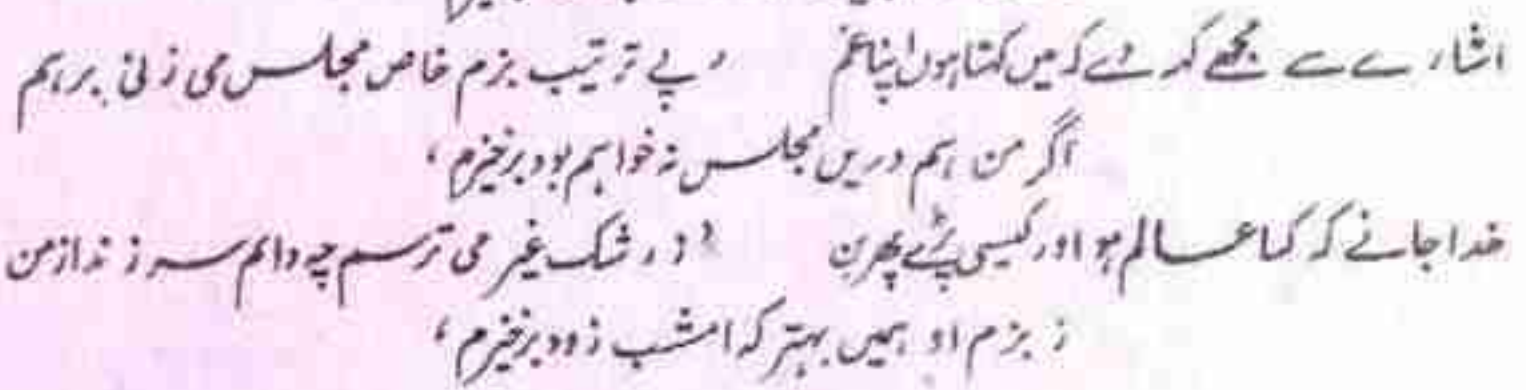 اشارے سے مجھے کہہ دے کہ میں کہتا ہوں اپنا غم ، پے ترتیب بزم خاص مجلس می زنی برہم
اگر من ہم دریں مجلس نہ خواہم بود برخیزم ،
خدا جانے کہ کیا عالم ہو اور کیسی پڑے پھر بن ، ز رشک غیر می ترسم چہ دانم سر زند از من
ز بزم او ہمیں بہتر کہ امشب زود برخیزم ،